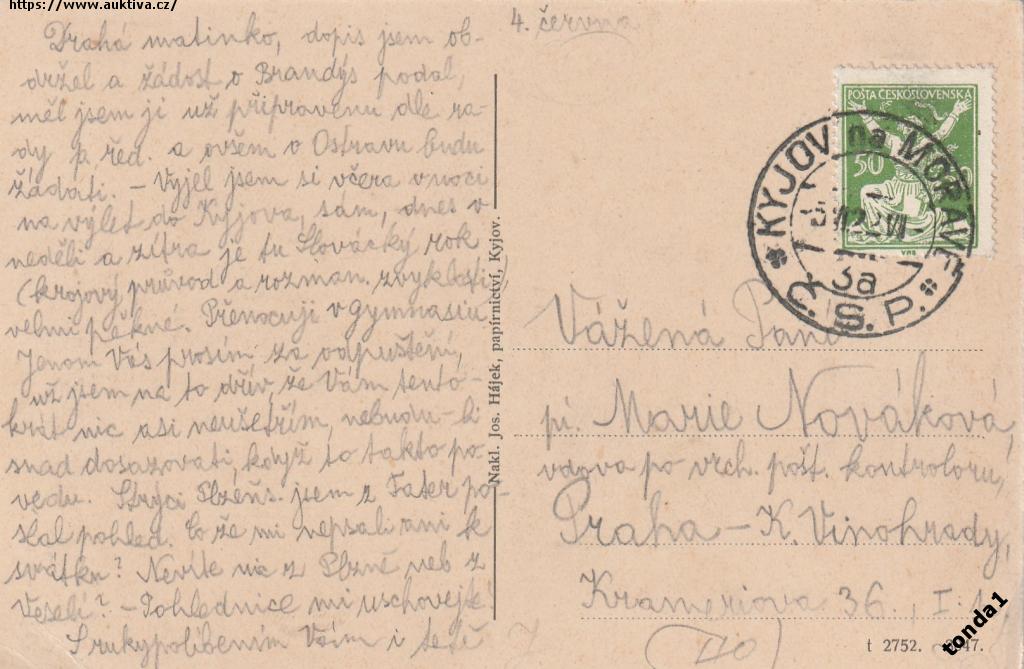 https://www.auktiva.cz/
4. června
Drahá matinko, dopis jsem ob-
držel a žádost o Brandýs podal,
měl jsem ji už připravenu dle ra-
dy p. řed. a ovšem o Ostravu budu
žádati. – Vyjel jsem si včera v noci
na výlet do Kyjova, sám, dnes v
neděli a zítra je tu Slovácký rok
(krojový průvod a rozman. zvyklosti)
velmi pěkné. Přenocuji v gymnasiu.
Jenom Vás prosím za odpuštění,
už jsem na to dřív, že Vám tento-
krát nic asi neušetřím, nebudu-li
snad dosazovati, když to takto po-
vedu. Strýci Plzeňs. jsem z Tater po-
slal pohled. Co že mi nepsali ani k
svátku? Nevíte nic z Plzně neb z
Veselí? – Pohlednice mi uschovejte.
S rukypolíbením Vám i tetě
Nakl. Jos. Hájek, papírnictví, Kyjov.
POŠTA ČESKOSLOVENSKÁ
50
KYJOV na MORAVĚ
3a
Č.S.P.
Vážená Paní
pí. Marie Nováková,
vdova po vrch. pošt. kontroloru,
Praha – K. Vinohrady,
Krameriova 36., I.
t 2752.
tonda1